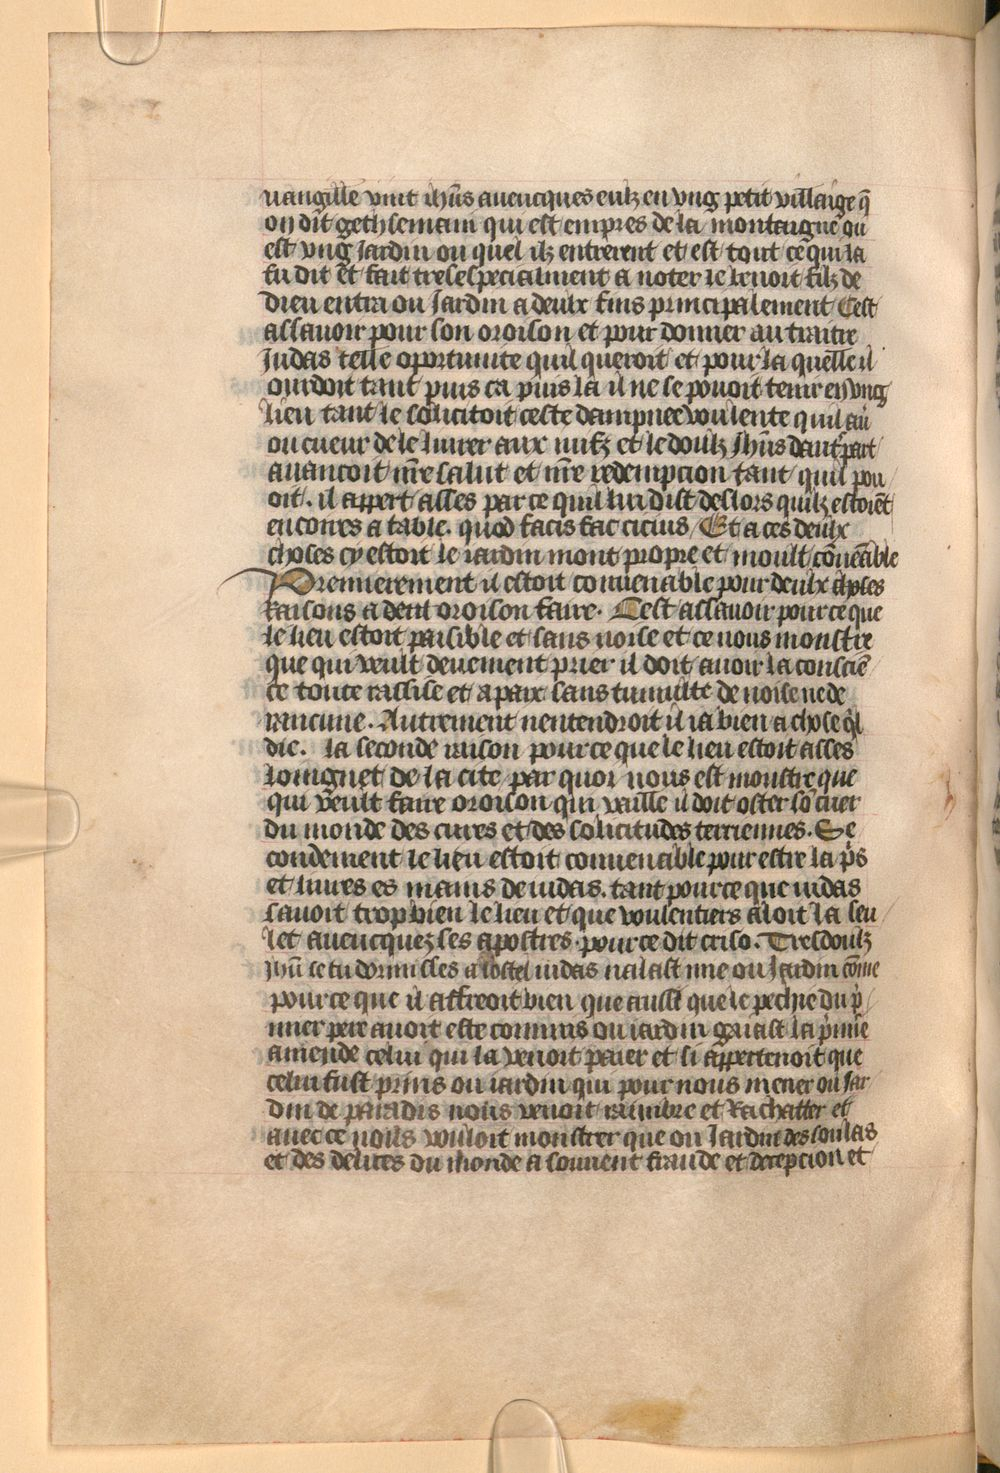 uangille vint ihūs auencques eulz en vng petit villaige q̄
on dit gethsemani qui est empres de la montaigne ou
est vng Jardin ou quel ilz entrerent et est tout ce qui la
fu dit et fait tresespecialment a noter le benoit filz de
dieu entra ou Jardin a deulx fins principalement Cest
assauoir pour son oroison et pour donner au traitre
Judas telle oportunite quil queroit et pour la quelle il
ouidoit tant puis ca puis la il ne se pouoit tenir en vng
lieu tant le solicitoit ceste dampnee voulente quil au
ou cueur de le liurer aux iuifz et le doulz Jhūs dautr̄ part
auancoit nr̄e salut et nr̄e redempcion tant quil pou
oit. il appert asses par ce quil lui dist deslors quilz estoiēt
encorres a table. quod facis fac cicius Et a ces deulx
choses cy estoit le iardin mont propre et moult cōueāble
Premierement il estoit conuenable pour deulx choses
Raisons a deul oroison faire. Cest assauoir pour ce que
le lieu estoit paisible et sans noise et ce nous monstre
que qui veult deuement prier il doit auoir la consciē
ce toute rassise et a paix sans tumulte de noise ne de
rancune. Autrement nentendroit il ia bien a chose ql̄
die. la seconde raison pour ce que le lieu estoit asses
loingnet de la cite par quoi nous est monstre que
qui veult faire oroison qui vaille il doit oster sō cuer
du monde des cures et des solicitudes terriennes. Se
condement le lieu estoit conuenable pour estre la pr̄s
et liures es mains de iudas. tant pour ce que iudas
sauoit trop bien le lieu et que voulentiers aloit la seu
let auencquez ses apostres. pour ce dit criso. Tresdoulz
Jhū se tu dormisses a lostel iudas nalast mie ou Jardin cōme
pour ce que il affreoit bien que aussi que le pechie du p̄
mier pere auoit este commis ou iardin q̄ faist la p̄mie
amende celui qui la venoit paier et si appertenoit que
celui fust prins ou iardin qui pour nous mener ou Jar
din de paradis nous venoit raimbre et Rachatter et
auec ce nous vouloit monstrer que ou Jardin des soulas
et des delices du monde a souuent fraude et decepcion et